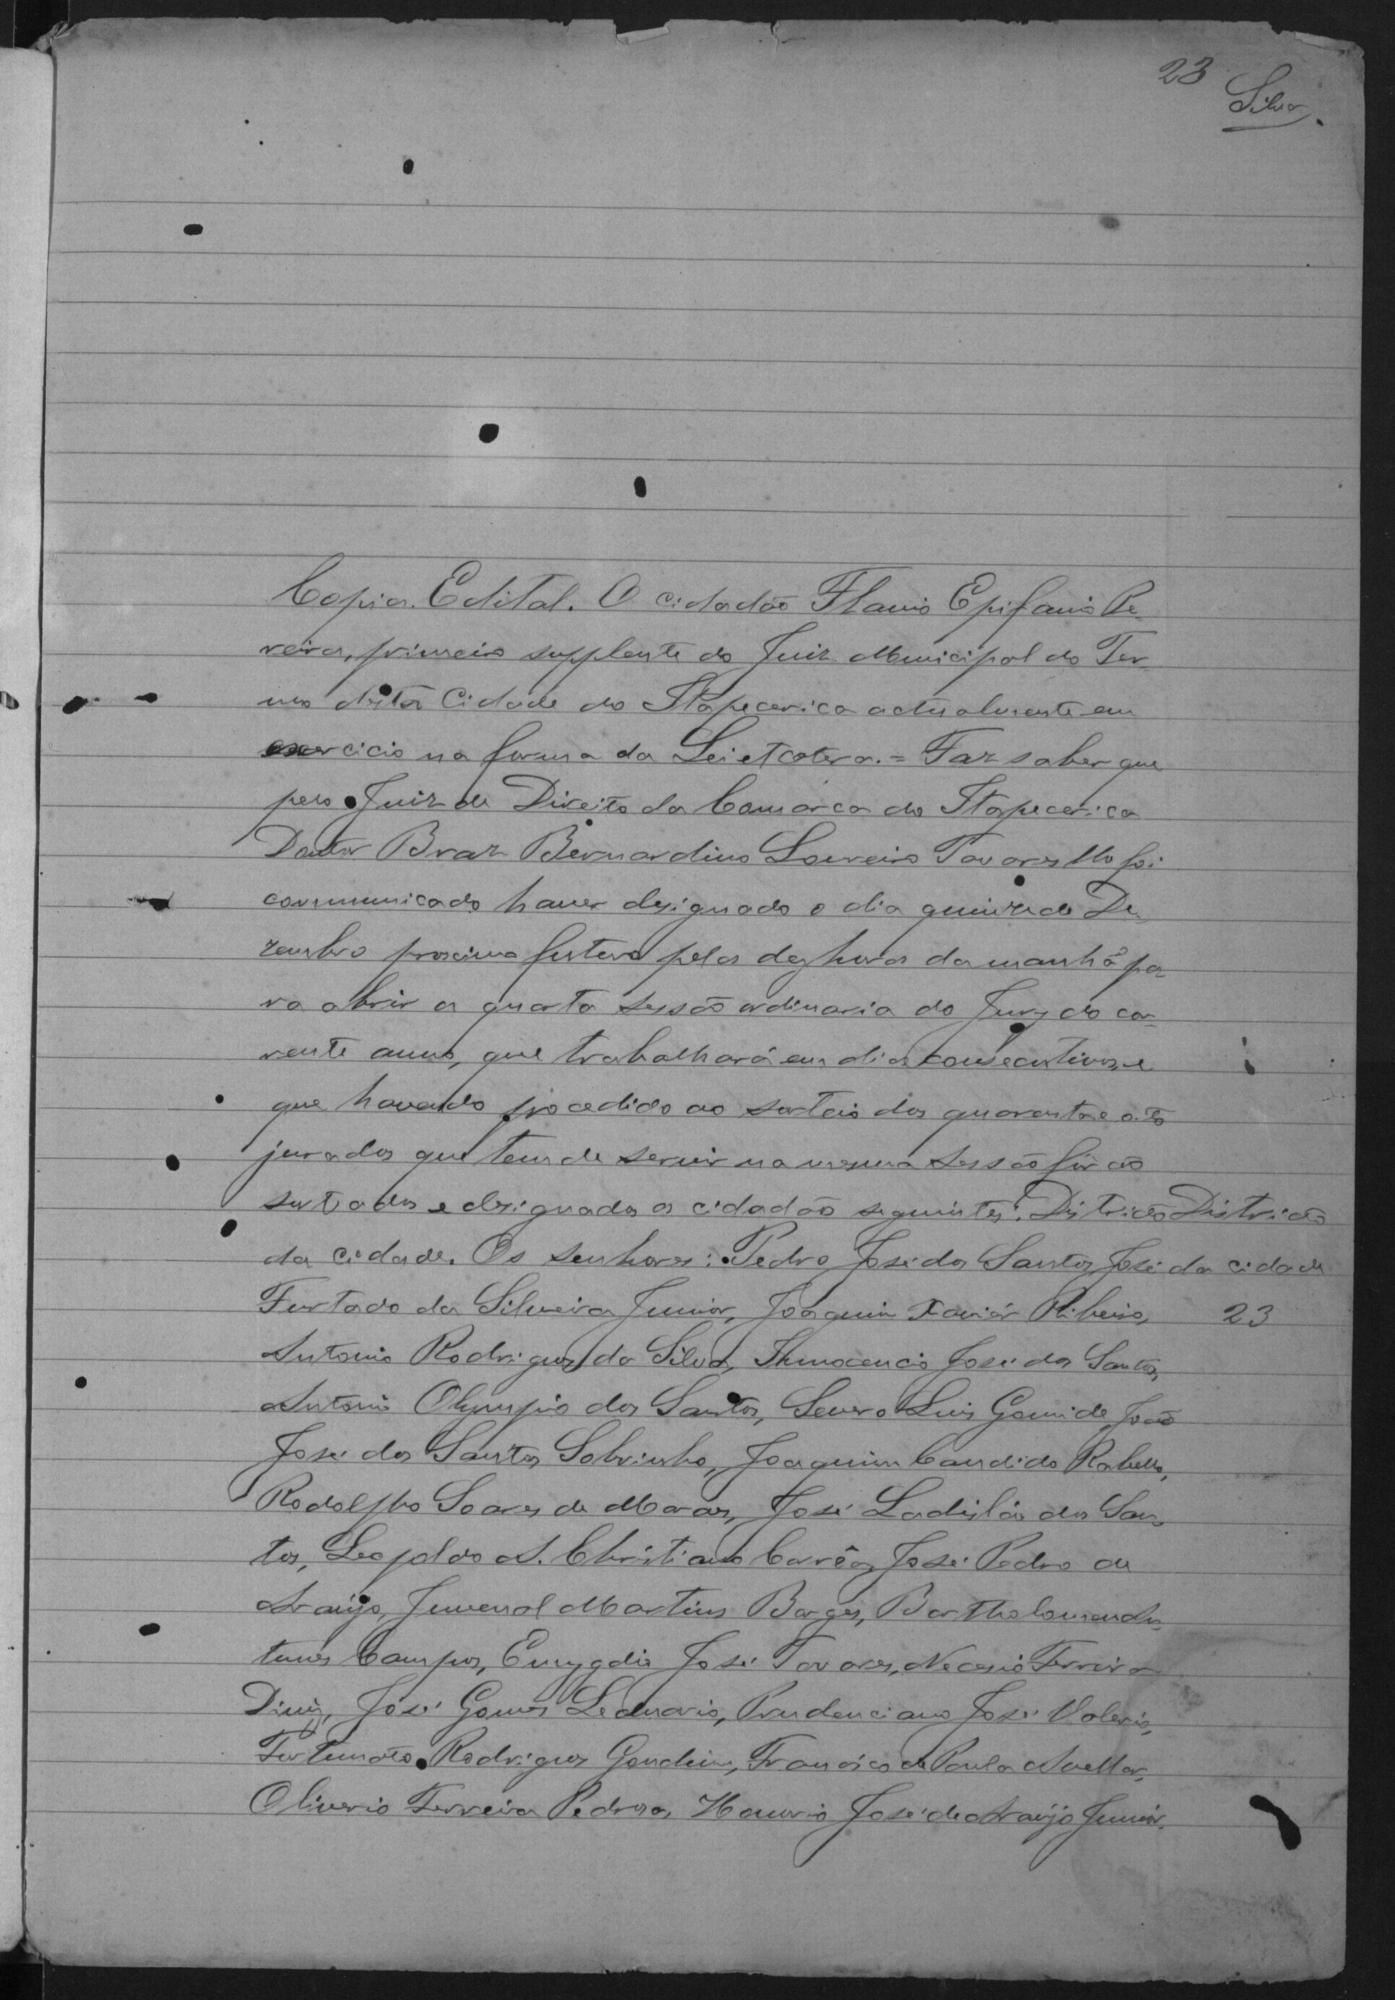 23
Silva
Copia. Edital. O cidadão Flavio Epifanio Pe-
reira, primeiro supplente do Juiz Municipal do Ter-
mo desta Cidade do Itapecerica actualmente em
exercicio na forma da Lei etcetera. = Faz saber que
pelo Juiz de Direito da Comarca do Itapecerica
Doutor Braz Bernardino Loureiro Tavares lhe foi
communicado haver designado o dia quinze de De-
zembro proximo futuro pelas dez horas da manhã pa-
ra abrir a quarta sessão ordinaria do Jury do cor-
rente anno, que trabalhará em dias consecutivos, e
que havendo procedido ao sorteio dos quarenta e oito
jurados que tem de servir na mesma sessão forão
sortados e designados os cidadão seguintes: Districto
Districto
da cidade. Os senhores: Pedro José dos Santos, José
da cidade
Furtado da Silveira Junior, Joaquim Xavier Ribeiro,
23
Antonio Rodrigues da Silva, Innocencio José dos Santos,
Antonio Olympio dos Santos, Severo Luis Gomide, João
José dos Santos Sobrinho, Joaquim Candido Rabello,
Rodolpho Soares de Moraes, José Ladislão dos San-
tos, Leopoldo A. Christiano Corrêa, José Pedro de
Araujo, Juvenal Martins Borges, Bartholomeu An-
tunes Campos, Emygdio José Tavares, Necesio Ferreira
Diniz, José Gomes Leonario, Prudenciano José Valerio,
Fortunato Rodrigues Gondim, Francisco de Paula
Oliverio Ferreira Pedrosa, Honorio José de Araujo Junior,